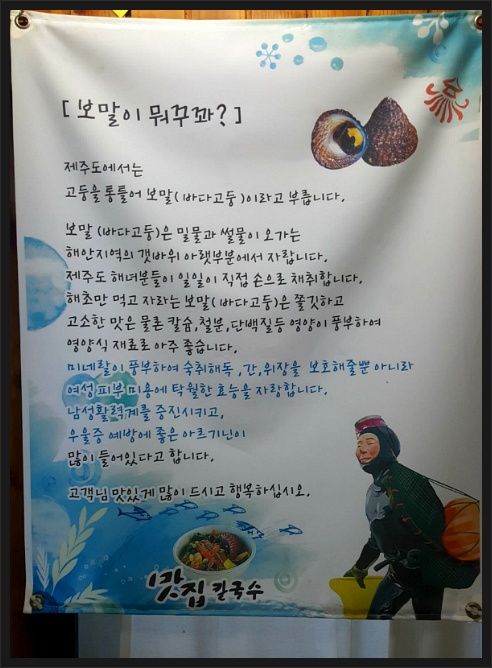 [ 보말이 뭐꾸꽈? ]
제주도에서는
고둥을 통틀어 보말(바다고둥)이라고 부릅니다.
보말 (바다고둥)은 밀물과 썰물이 오가는
해안지역의 갯바위 아랫부분에서 자랍니다.
제주도 해녀분들이 일일이 직접 손으로 채취합니다.
해초만 먹고 자라는 보말(바다고둥)은 쫄깃하고
고소한 맛은 물론 칼슘,철분,단백질등 영양이 풍부하여
영양식 재료로 아주 좋습니다.
미네랄이 풍부하여 숙취해동 ,간,위장을 보호해줄뿐 아니라
여성 피부 미용에 탁월한 효능을 자랑합니다.
남성활력계를 증진시키고,
우울증 예방에 좋은 아르기닌이
많이 들어있다고 합니다.
고객님 맛있게 많이 드시고 행복하십시오.
맛집 칼국수